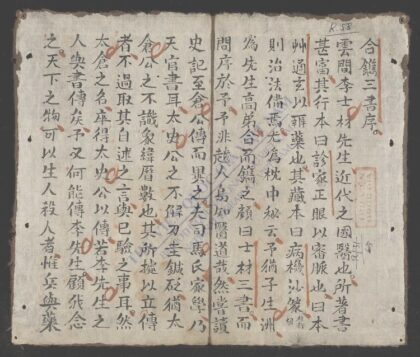 R.58
合鐫三書序。
雲間李士材先生近代之國醫也所著書
甚富其行本曰診家正眼以審脉也曰本
艸通玄以辨藥也其藏本曰病機沙篆
則治法俻焉尤為枕中秘云予猶子生洲
為先生高弟合而鐫之顏曰士材三書而
問序於予予非越人烏知醫道哉然嘗讀
史記至倉公傳而異之夫司馬氏家學乃
天官書耳太史公之不解刀圭鍼砭猶太
倉公之不識象緯曆數也其所據以立傳
者不過取其自述之言與已驗之事耳然
太倉之名得太史公以傳若李先生之
人與書傳矣予又何能傳李先生顧我念
之天下之物可以生人殺人者惟兵與藥